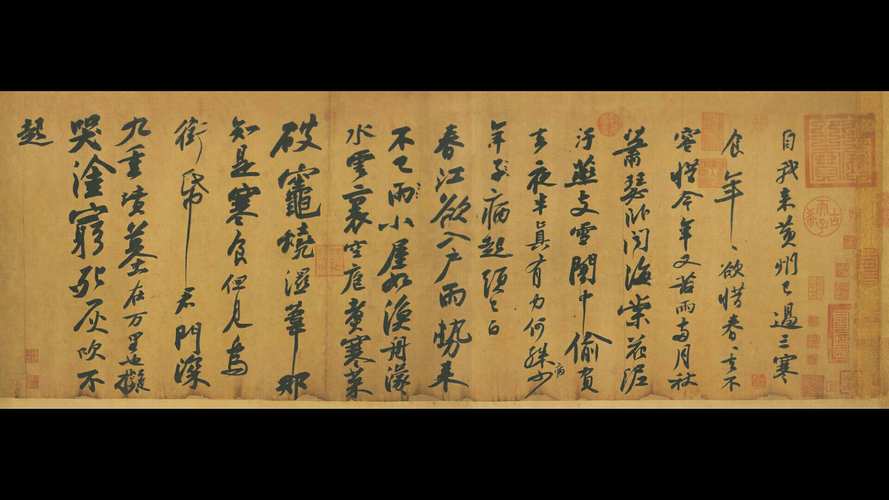 自我來黃州已過三寒
食年〻欲惜春〻去不
容惜今年又苦雨兩月秋
蕭瑟臥聞海棠花泥
汙燕支雪闇中偷負
去夜半真有力何殊少病
年子病起頭已白
春江欲入戶雨勢來
不已雨小屋如漁舟濛〻
水雲裏空庖煮寒菜
破竈燒濕葦那
知是寒食但見烏
銜帋君門深
九重墳墓在万里也擬
哭塗窮死灰吹不
起